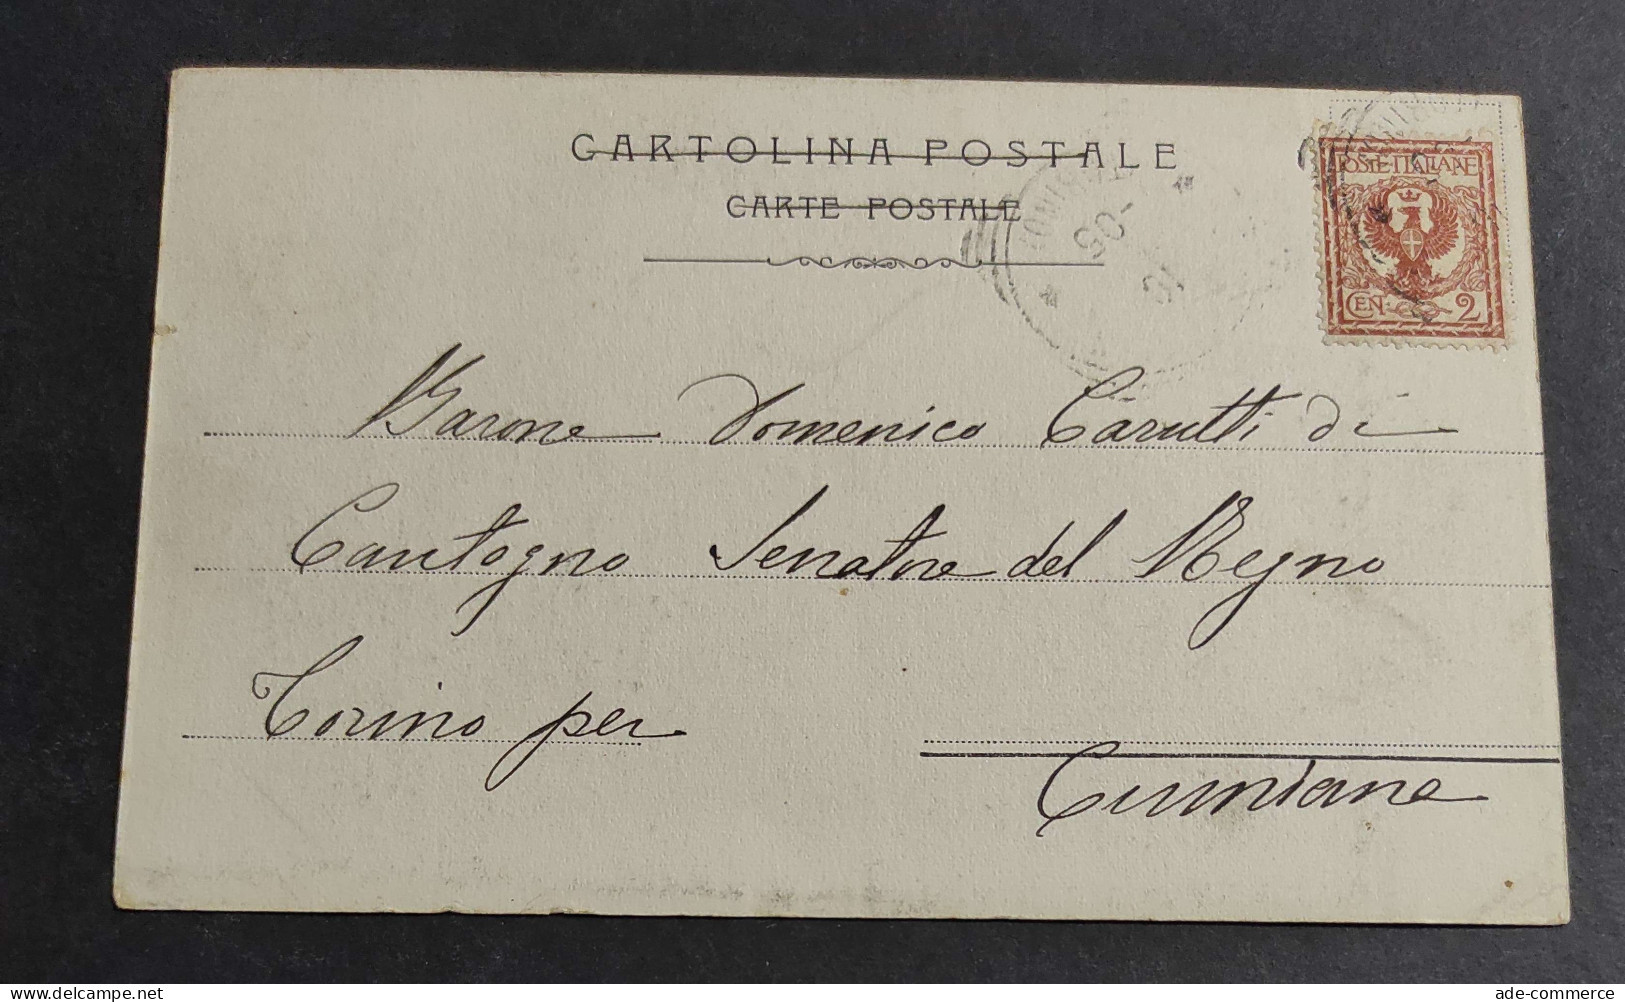 CARTOLINA POSTALE
CARTE POSTALE
POSTE ITALIANE
CEN. 2
TORINO
05
Barone Domenico Carutti di
Cantogno Senatore del Regno
Torino per
Cumiana
delcampe.net
ade-commerce